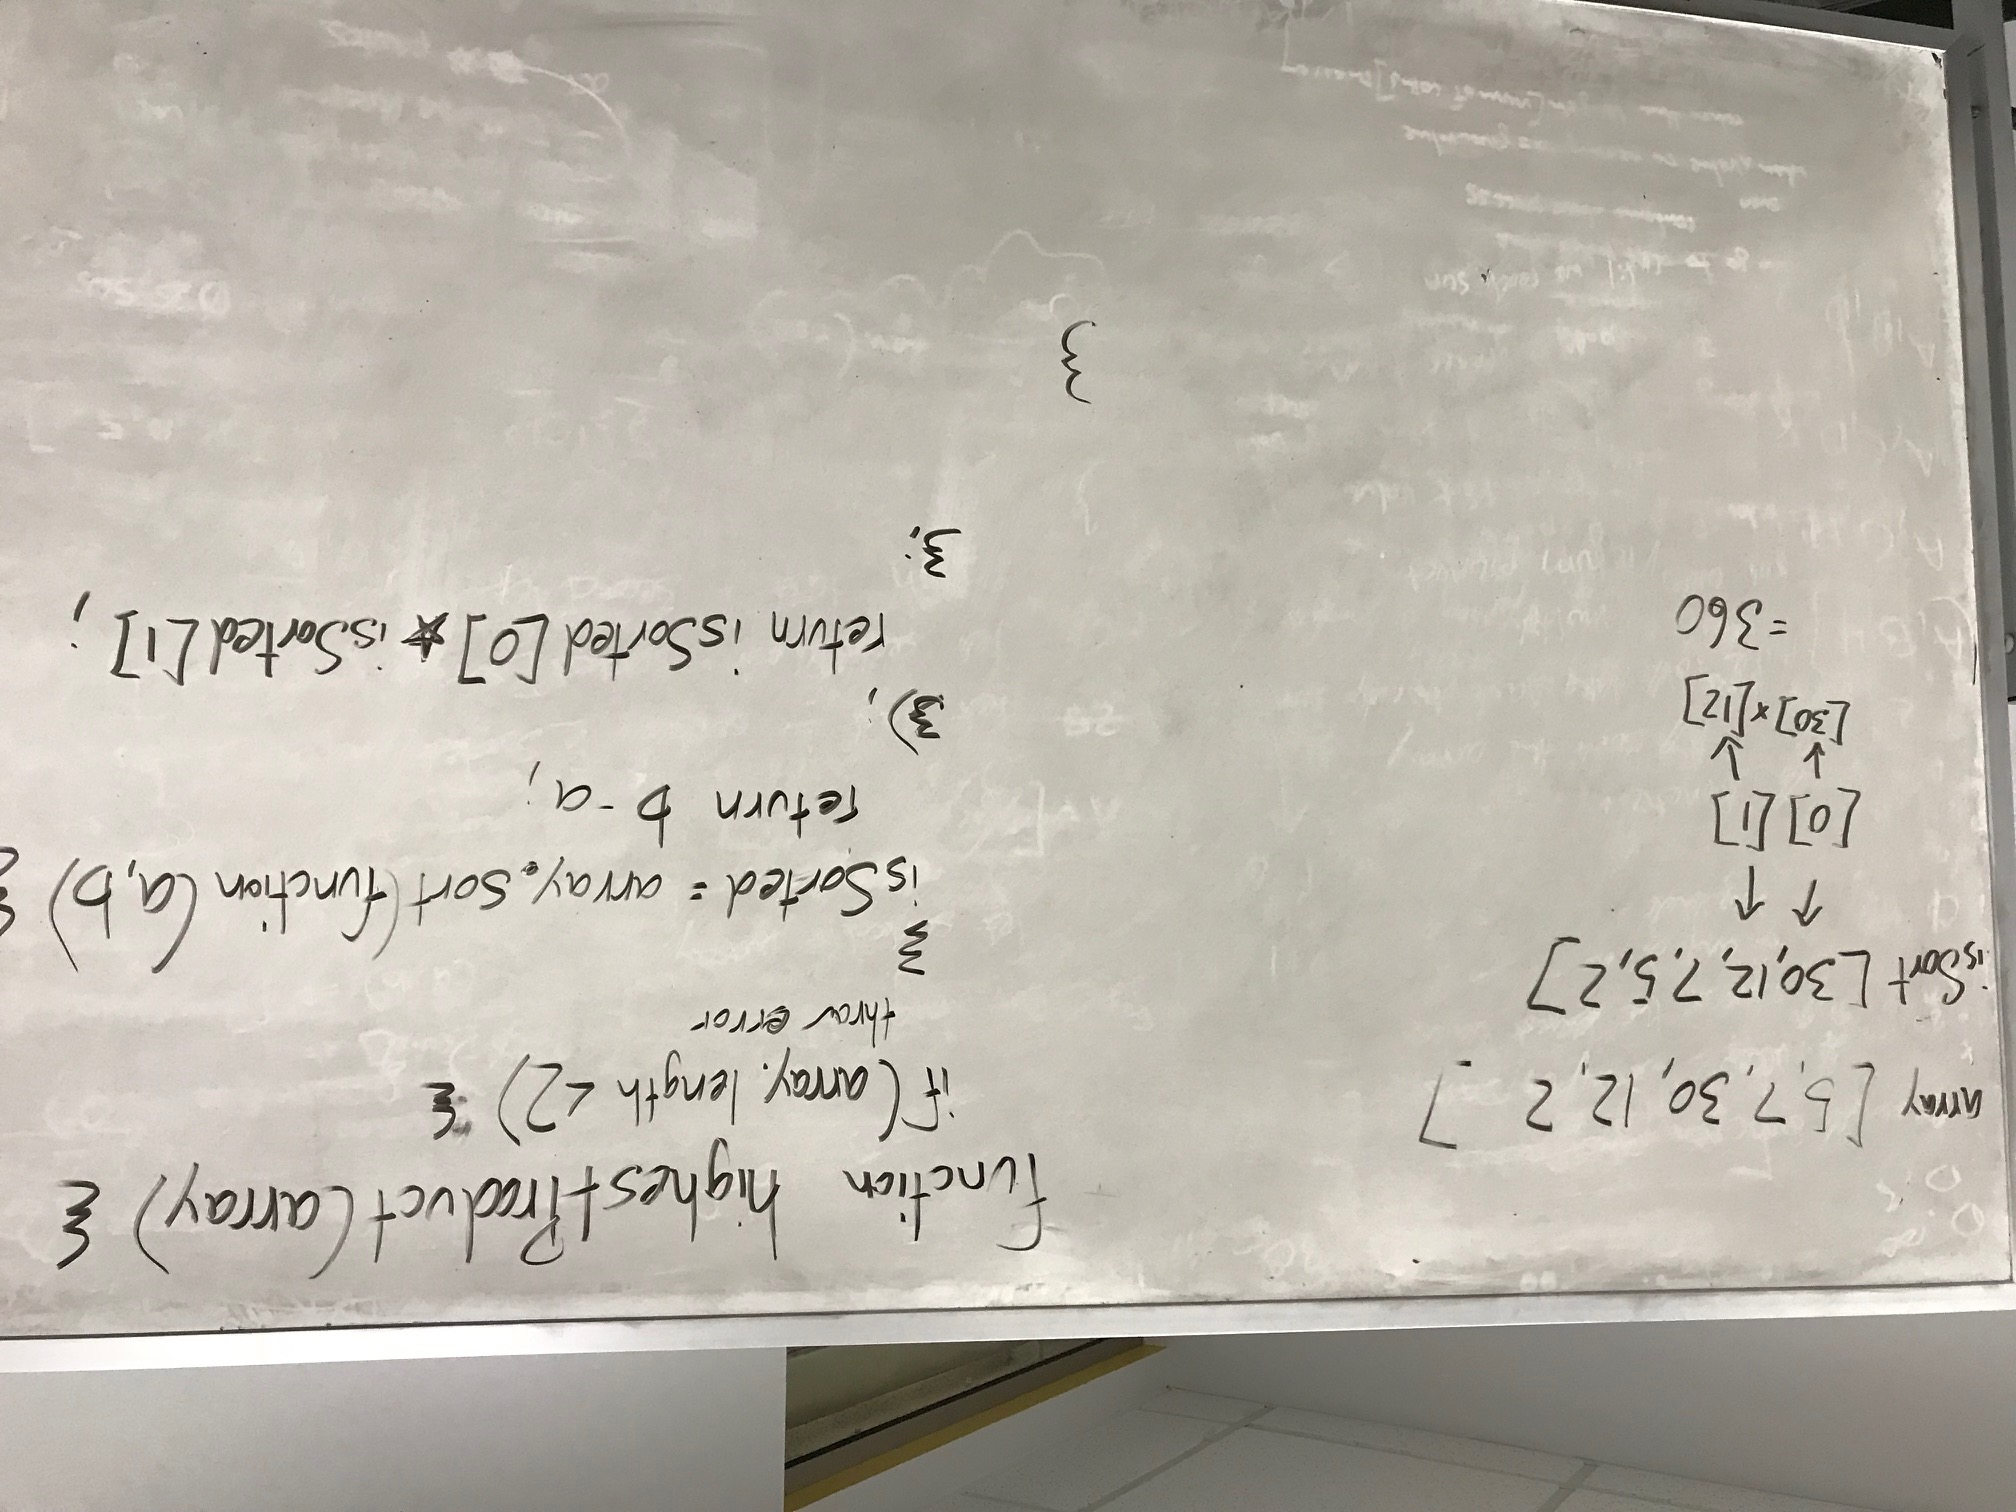 array [5, 7, 30, 12, 2 ]
isSort [30, 12, 7, 5, 2]
↑ ↑
[0] [1]
↓ ↓
[30] x [12]
= 360
function highestProduct(array) {
if (array.length < 2) {
throw error
}
isSorted = array.sort(function (a, b) {
return b - a;
});
return isSorted [0] * isSorted [1] ;
};
}